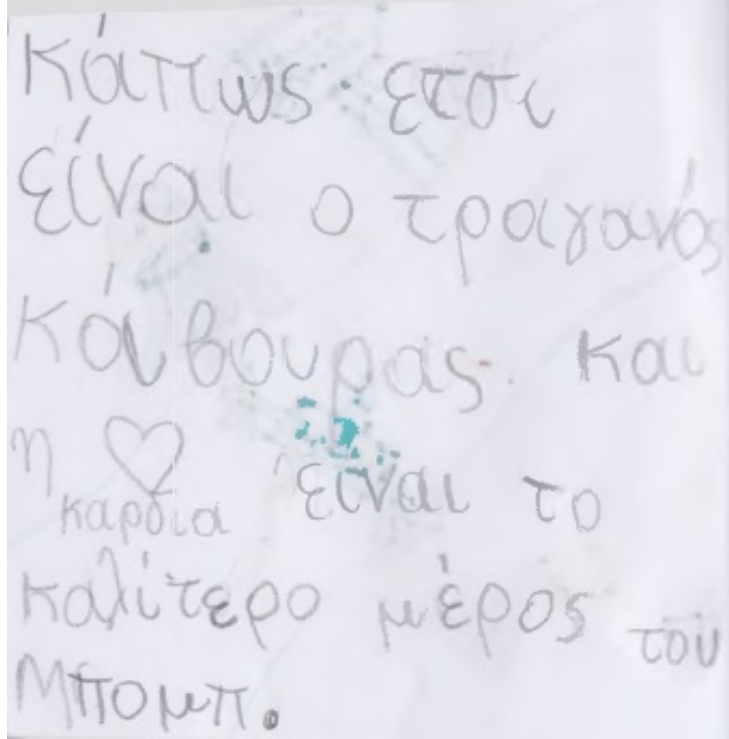 Κάπως έτσι
είναι ο τραγανός
Κάβουρας και
η ♡ καρδια είναι το
καλίτερο μέρος του
Μπομπ.